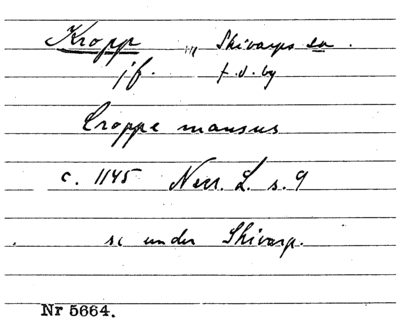 Kropp ", Skivarps sn.
jf. t.d. by
Croppe mansus
c. 1145 Necr. L. s. 9
se under Skivarp.
Nr 5664.